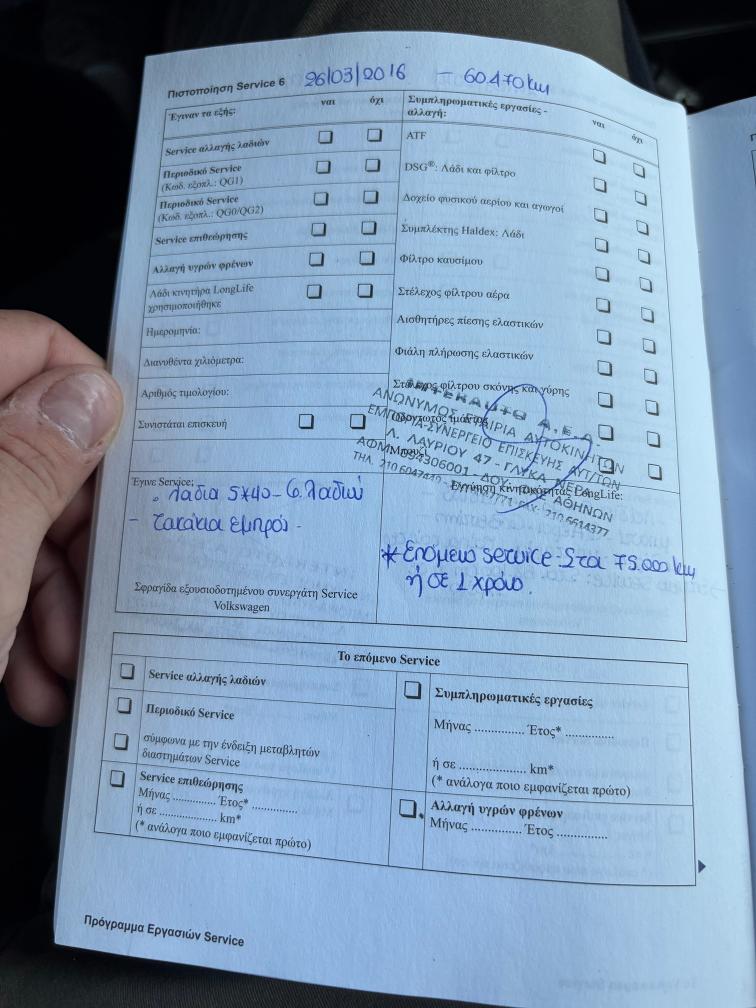 Πιστοποίηση Service 6 26/03/2016 - 60470 km
Έγιναν τα εξής: ναι όχι
Service αλλαγής λαδιών
Περιοδικό Service
(Κωδ. εξοπλ.: QG1)
Περιοδικό Service
(Κωδ. εξοπλ.: QG0/QG2)
Service επιθεώρησης
Αλλαγή υγρών φρένων
Λάδι κινητήρα LongLife
χρησιμοποιήθηκε
Ημερομηνία:
Διανυθέντα χιλιόμετρα:
Αριθμός τιμολογίου:
Συνιστάται επισκευή
Συμπληρωματικές εργασίες -
αλλαγή: ναι όχι
ATF
DSG®: Λάδι και φίλτρο
Δοχείο φυσικού αερίου και αγωγοί
Συμπλέκτης Haldex: Λάδι
Φίλτρο καυσίμου
Στέλεχος φίλτρου αέρα
Αισθητήρες πίεσης ελαστικών
Φιάλη πλήρωσης ελαστικών
Στέλεχος φίλτρου σκόνης και γύρης
Οδοντωτός ιμάντας
Μπουζί
INTERAUTO A.E.A.
ΑΝΩΝΥΜΟΣ ΕΤΑΙΡΙΑ ΑΥΤΟΚΙΝΗΤΩΝ
ΕΜΠΟΡΙΑ-ΣΥΝΕΡΓΕΙΟ ΕΠΙΣΚΕΥΗΣ ΑΥΤ/ΤΩΝ
Λ. ΛΑΥΡΙΟΥ 47 - ΓΛΥΚΑ ΝΕΡΑ
ΑΦΜ: 094306001 - ΔΟΥ: ΑΘΗΝΩΝ
ΤΗΛ. FAX: 210 6614377
Έγινε Service:
λαδια 5*40 - Φ. λαδιού
- τακάκια εμπρός -
Σφραγίδα εξουσιοδοτημένου συνεργάτη Service
Volkswagen
Εγγύηση κινητικότητας LongLife:
* Επόμενο service: Στα 75.000 km
ή σε 1 χρόνο.
Το επόμενο Service
Service αλλαγής λαδιών
Περιοδικό Service
σύμφωνα με την ένδειξη μεταβλητών
διαστημάτων Service
Service επιθεώρησης
Μήνας .............. Έτος* ..............
ή σε ................... km*
(* ανάλογα ποιο εμφανίζεται πρώτο)
Συμπληρωματικές εργασίες
Μήνας .............. Έτος* ..............
ή σε ................... km*
(* ανάλογα ποιο εμφανίζεται πρώτο)
Αλλαγή υγρών φρένων
Μήνας .............. Έτος ..............
Πρόγραμμα Εργασιών Service